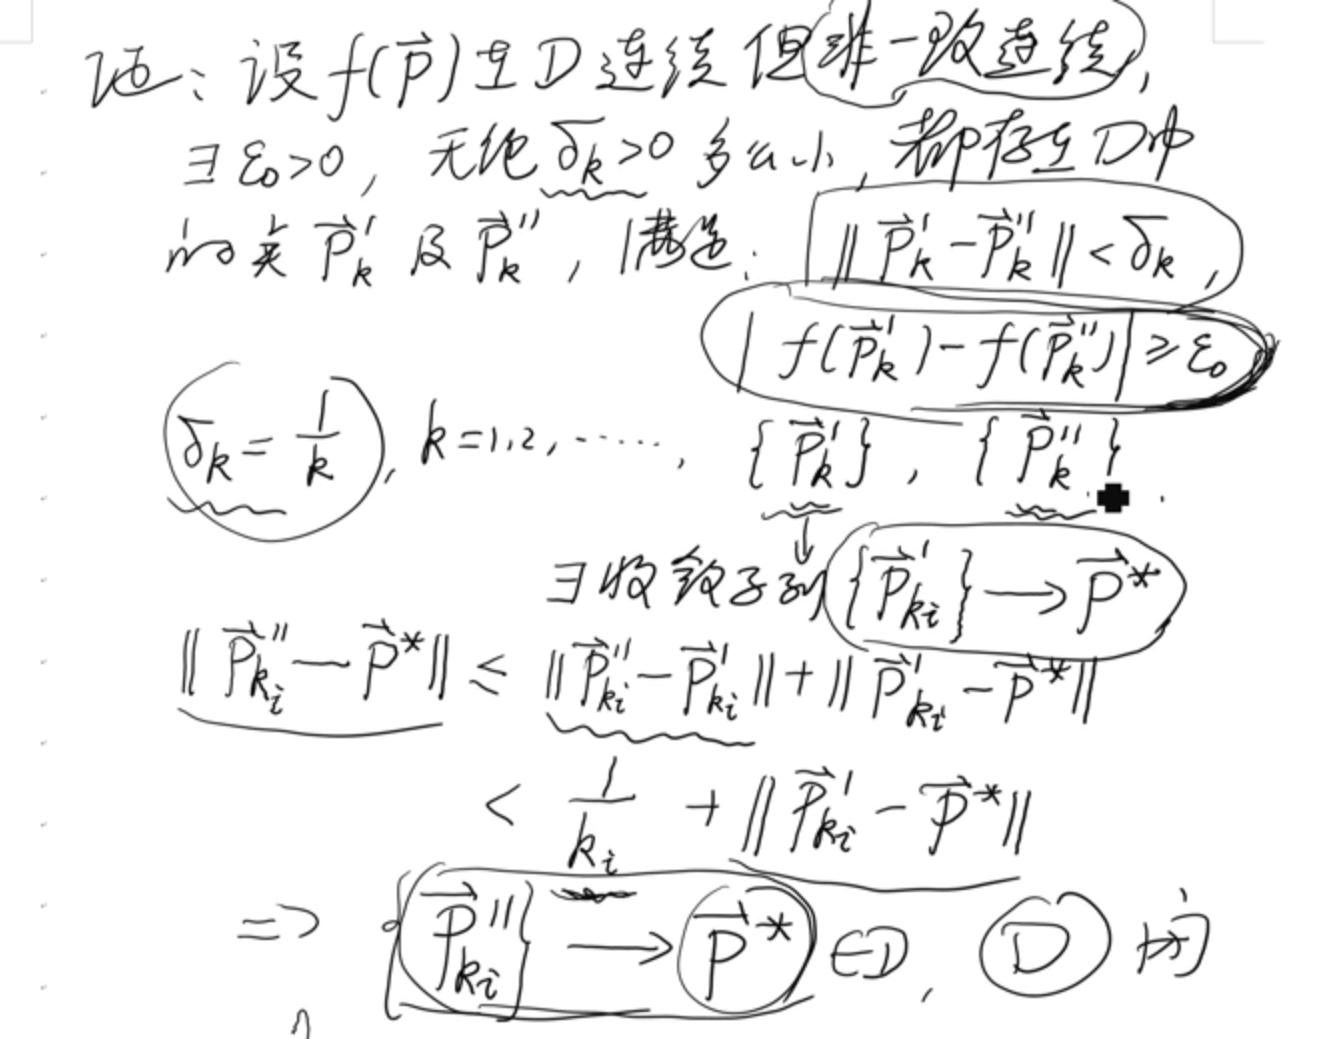 证：设 f(p⃗)在D连续但非一致连续,
∃ε₀>0, 无论δₖ>0多么小, 都存在D中
的点 P⃗ₖ′ 及 P⃗ₖ″, 满足: ‖P⃗ₖ′−P⃗ₖ″‖<δₖ,
|f(P⃗ₖ′)−f(P⃗ₖ″)|≥ε₀
δₖ=1/k, k=1,2,……, {P⃗ₖ′}, {P⃗ₖ″}.
↓
∃收敛子列{P⃗ₖᵢ′}→P⃗*
‖P⃗ₖᵢ″−P⃗*‖≤‖P⃗ₖᵢ″−P⃗ₖᵢ′‖+‖P⃗ₖᵢ′−P⃗*‖
<1/kᵢ+‖P⃗ₖᵢ′−P⃗*‖
=>{P⃗ₖᵢ″}→P⃗*∈D, D闭